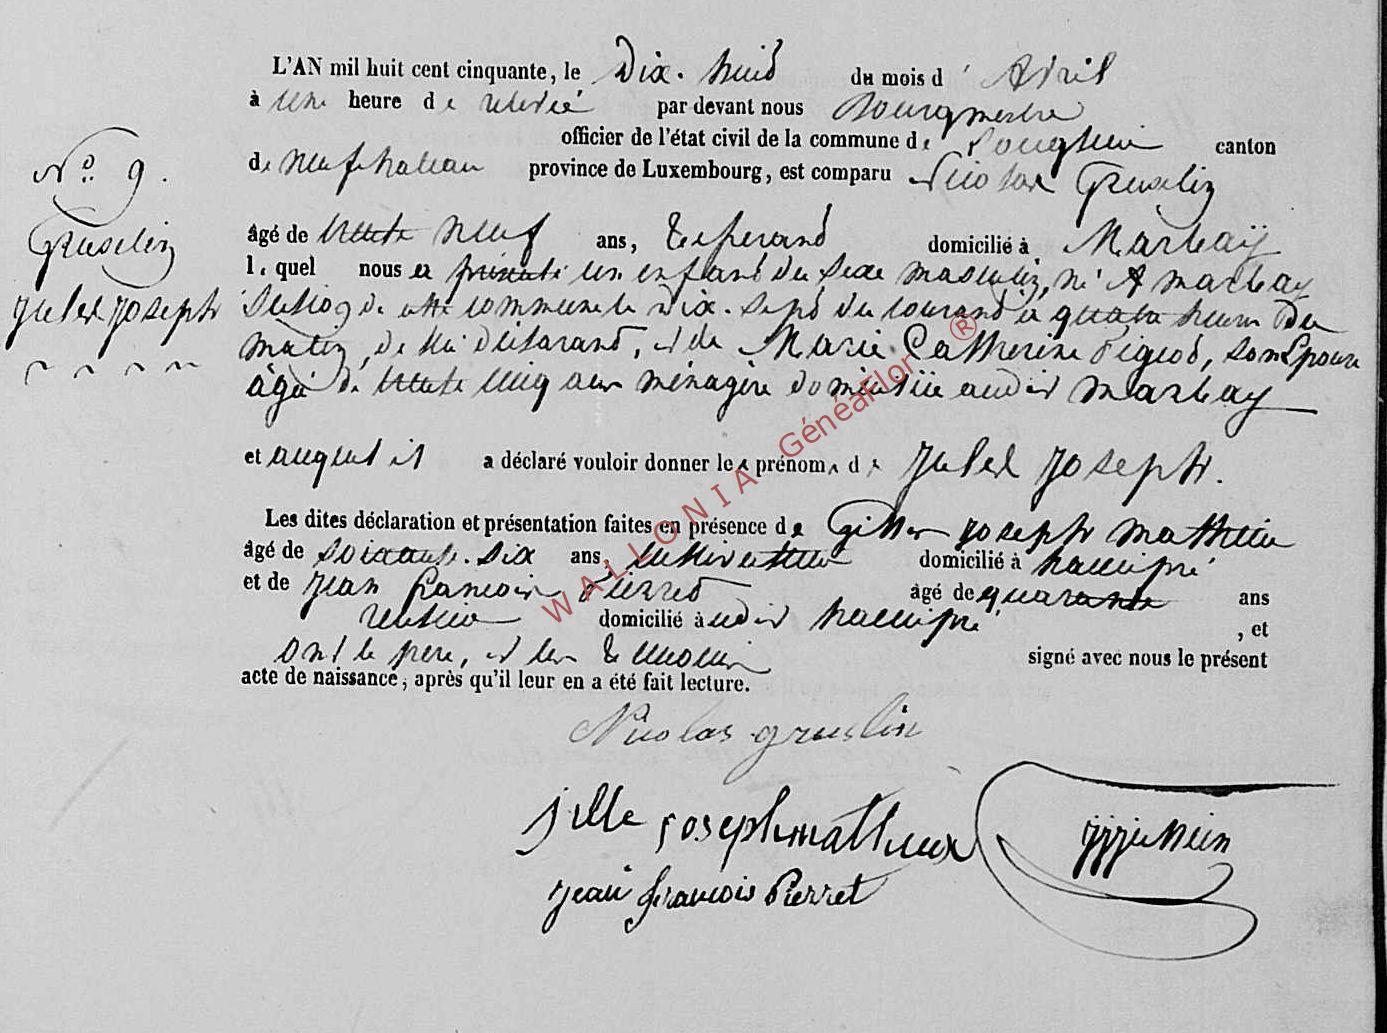 L'AN mil huit cent cinquante, le Dix-huit du mois d' Avril
à une heure de relevée par devant nous Bourgmestre
officier de l'état civil de la commune de Longlier canton
de Neufchateau province de Luxembourg, est comparu Nicolas Gruselin
N° 9.
Gruselin
Jules Joseph
âgé de trente neuf ans, domicilié à Marbay
lequel nous a présenté un enfant du sexe masculin, né A marbay
section de cette commune le Dix-sept du courant à quatre heures Du
matin, de lui déclarant, et de Marie Catherine Pigeot, son Epouse
âgé de trente cinq ans ménagère domiciliée audit Marbay
et auquel il a déclaré vouloir donner les prénoms de Jules Joseph.
Les dites déclaration et présentation faites en présence de Gilles Joseph Mathieu
âgé de soixante-six ans, cultivateur domicilié à hamipré
et de Jean François Pierret âgé de quarante ans
domicilié audit hamipré, et
ont le père, et les témoins signé avec nous le présent
acte de naissance, après qu'il leur en a été fait lecture.
Nicolas gruslin
jille joseph mathieux
jean francois Pierret
WALLONIA GénéaFlor ®